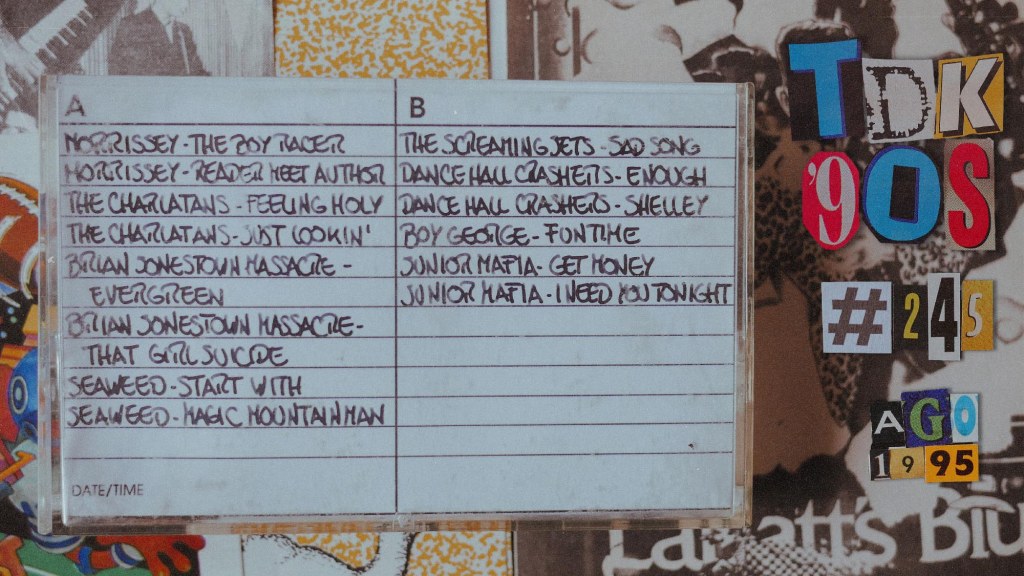 A
MORRISSEY - THE BOY RACER
MORRISSEY - READER MEET AUTHOR
THE CHARLATANS - FEELING HOLY
THE CHARLATANS - JUST LOOKIN'
BRIAN JONESTOWN MASSACRE -
EVERGREEN
BRIAN JONESTOWN MASSACRE -
THAT GIRL SUICIDE
SEAWEED - START WITH
SEAWEED - MAGIC MOUNTAIN MAN
DATE/TIME
B
THE SCREAMING JETS - SAD SONG
DANCE HALL CRASHERS - ENOUGH
DANCE HALL CRASHERS - SHELLEY
BOY GEORGE - FUNTIME
JUNIOR MAFIA - GET MONEY
JUNIOR MAFIA - I NEED YOU TONIGHT
TDK
'90S
#245
AGO
1995
Labatt's Blu